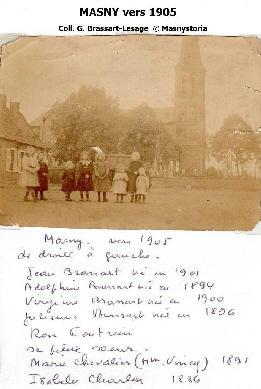 MASNY vers 1905
Coll. G. Brassart-Lesage © Masnystoria
Masny. vers 1905
de droite à gauche.
Jean Brassart né en 1901
Adolphine Brassart née en 1894
Virginie Brassart née en 1900
Brassart née en 1896
sa petite soeur.
Marie Chevalier (Mme Vincq) 1891
Isabelle Charlet 1886